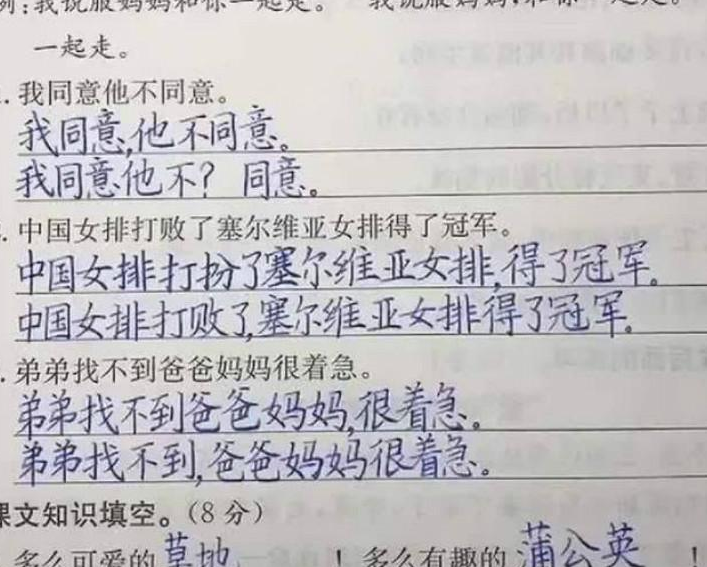 例:我说服妈妈和你一起走。 我说服妈妈,和你一起走。
一起走。
.我同意他不同意。
我同意,他不同意。
我同意他不?同意。
.中国女排打败了塞尔维亚女排得了冠军。
中国女排打扮了塞尔维亚女排,得了冠军。
中国女排打败了,塞尔维亚女排得了冠军.
.弟弟找不到爸爸妈妈很着急。
弟弟找不到爸爸妈妈,很着急。
弟弟找不到,爸爸妈妈很着急。
课文知识填空。(8分)
.多么可爱的草地!多么有趣的蒲公英!